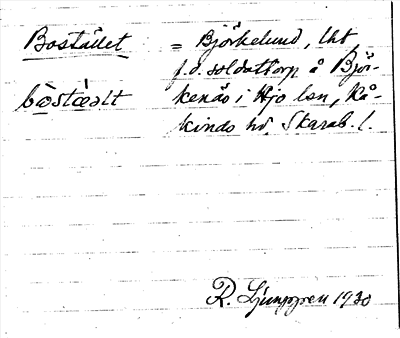 Bostället = Björkelund, lht
f.d. soldattorp å Björ-
bòstæ̀lt kenäs i Hjo lsn, Kå-
kinds hd, Skarab. l.
R. Ljunggren 1930